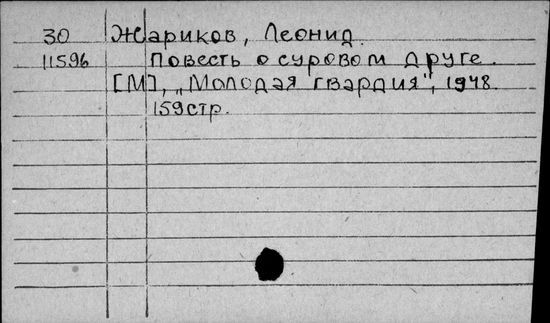 30 Жариков, Леонид.
11596 Повесть о суровом друге.
[М], „Молодая гвардия", 1948.
159стр.